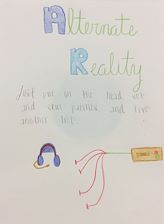 Alternate
Reality
Just put in the head set
and skin patches and live
another life.